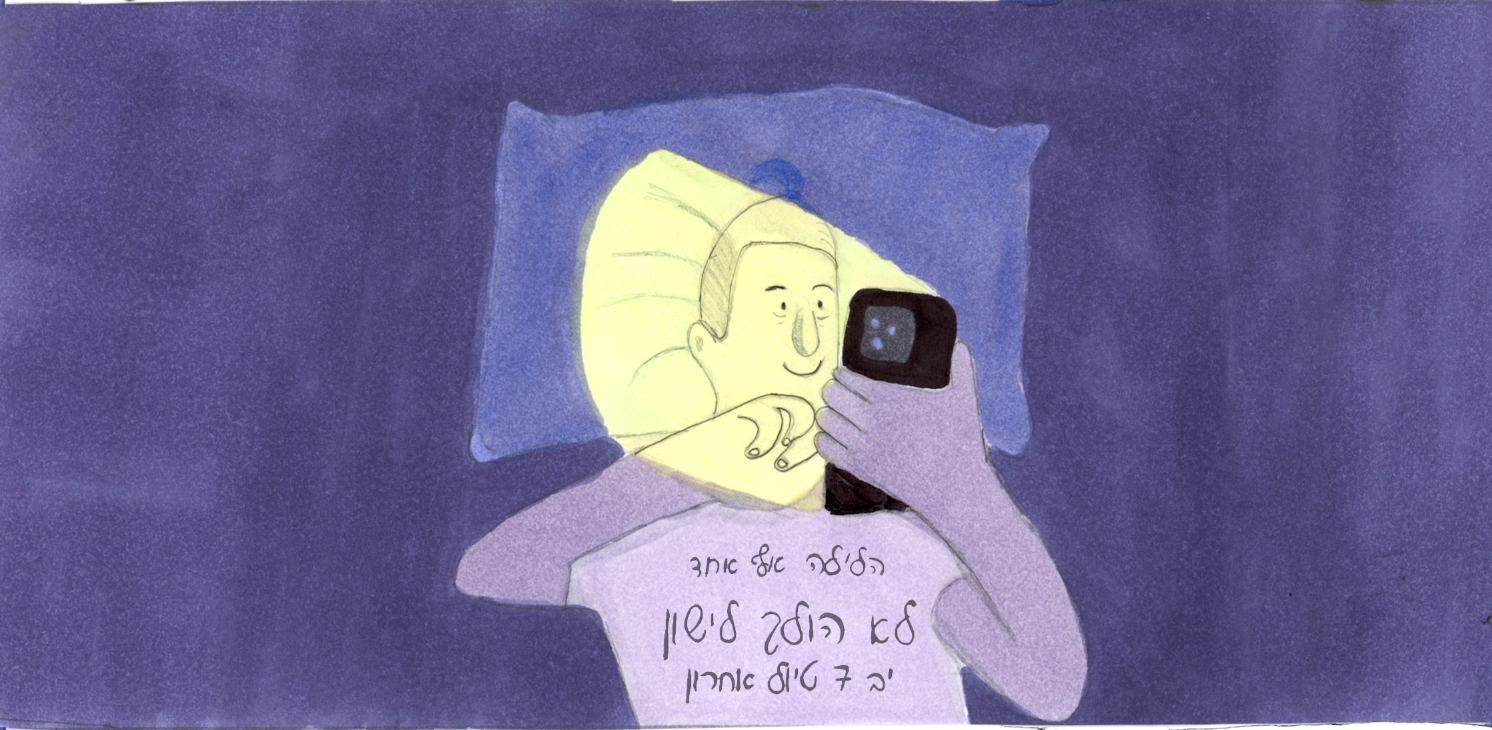 הלילה אף אחד
לא הולך לישון
יב 7 טיול אחרון